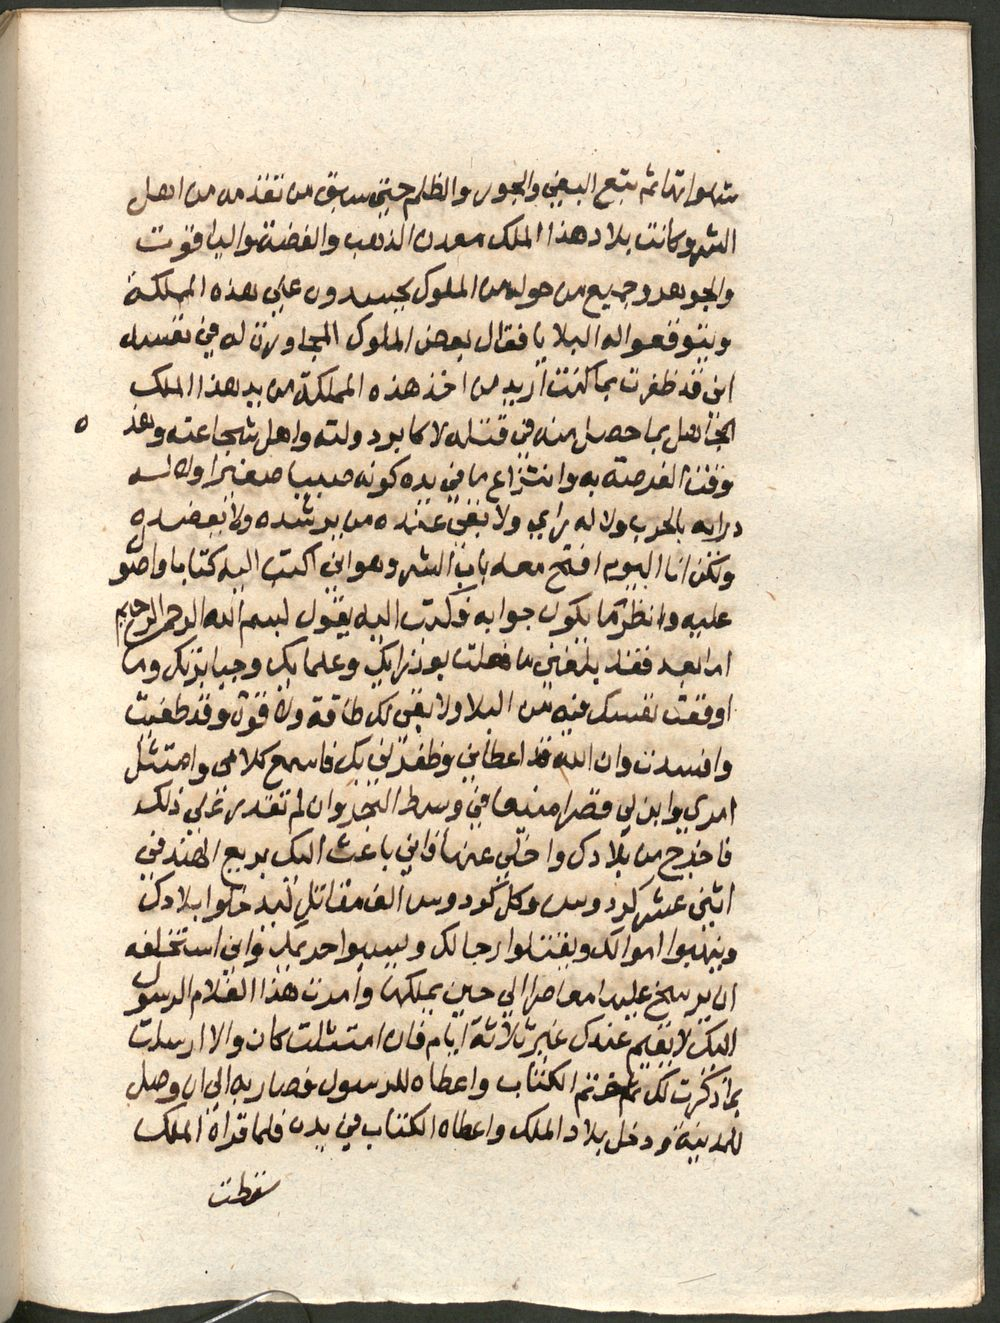 شهواتها ثم يتبع البغي والجور والظلم حتي سبق من تقدمه من اهل
الشر وكانت بلاد هذا الملك معدن الذهب والفضة والياقوت
والجوهر وجميع من حوله من الملوك يحسدون علي هذه المملكة
ويتوقعوا له البلايا فقال بعض الملوك المجاورين له في نفسه
اني قد ظفرت بما كنت اريد من اخذ هذه المملكة من يد هذا الملك
الجاهل بما حصل منه في قتله لاكابر دولته واهل شجاعته وهذ ه
وقت الفرصة به وانتزاع ما في يده كونه صبيا صغيرا ولا له
درايه بالحرب ولا له راي ولا بقي عنده من يرشده ولا يعضده
ولكن انا اليوم افتح معه باب الشر وهو اني اكتب اليه كتابا واصو
عليه وانظر ما يكون جوابه فكتب اليه يقول بسم الله الرحمن الرحيم
اما بعد فقد بلغني ما فعلت بوزرايك وعلمايك وجبابرتك وما
اوقعت نفسك فيه من البلا ولا بقي لك طاقة ولا قوة وقد طغيت
وافسدت وان الله قد اعطاني وظفرني بك فاسمع كلامي وامتثل
امري وابن لي قصرا منيعا في وسط البحر وان لم تقدر علي ذلك
فاخرج من بلادك واخلي عنها فاني باعث اليك بديع الهند في
اثني عشر كردوس وكل كردوس الف مقاتل ليدخلوا بلادك
وينهبوا اموالك ويقتلوا رجالك ويسبوا حريمك واني استخلفه
ان يرسخ عليها محاصرا الي حين يملكها وامرت هذا الغلام الرسول
اليك لا يقيم عندك غير ثلاثة ايام فان امتثلت كان والا ارسلت
بما ذكرت لك ثم ختم الكتاب واعطاه للرسول فصار به الي ان وصل
للمدينة ودخل بلاد الملك واعطاه الكتاب في يده فلما قراه الملك
سقطت